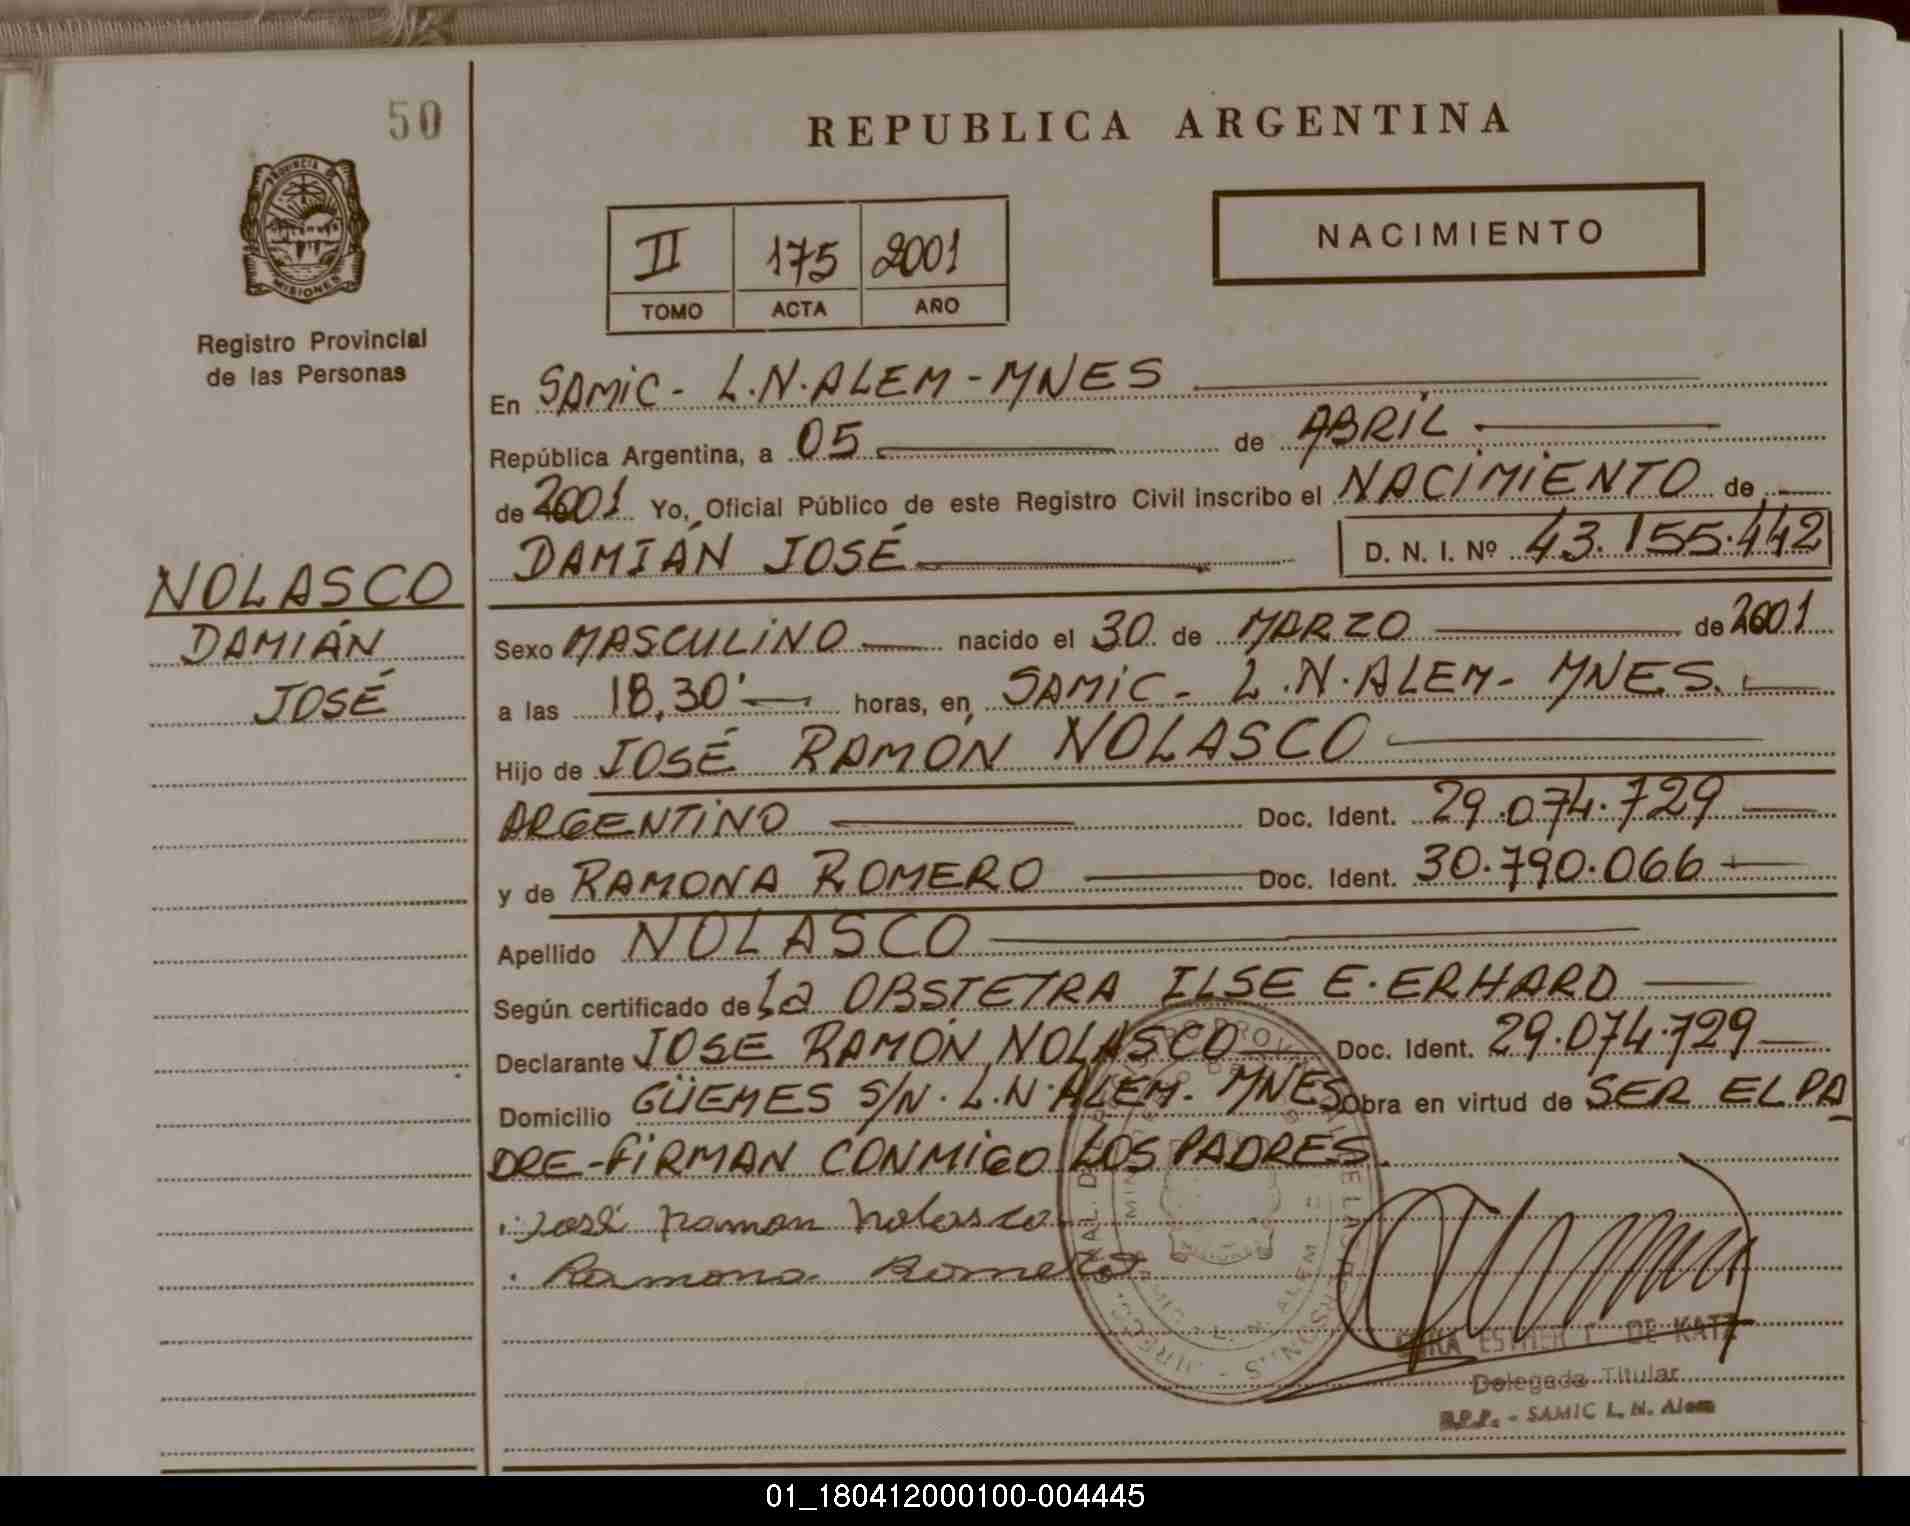 50
REPUBLICA ARGENTINA
PROVINCIA DE
MISIONES
Registro Provincial
de las Personas
II 175 2001
TOMO ACTA AÑO
NACIMIENTO
En SAMIC - L.N. ALEM - MNES
República Argentina, a 05 de ABRIL
de 2001 Yo, Oficial Público de este Registro Civil inscribo el NACIMIENTO de
DAMIÁN JOSÉ D. N. I. Nº 43.155.442
NOLASCO
DAMIÁN
JOSÉ
Sexo MASCULINO nacido el 30 de MARZO de 2001
a las 18,30' horas, en SAMIC - L.N. ALEM - MNES.
Hijo de JOSÉ RAMÓN NOLASCO
ARGENTINO Doc. Ident. 29.074.729
y de RAMONA ROMERO Doc. Ident. 30.790.066
Apellido NOLASCO
Según certificado de La OBSTETRA ILSE E. ERHARD
Declarante JOSE RAMÓN NOLASCO Doc. Ident. 29.074.729
Domicilio GÜEMES S/N. L.N. ALEM. MNES Obra en virtud de SER EL PA
DRE - FIRMAN CONMIGO LOS PADRES.
José Ramon Nolasco
Ramona Romero
ESTHER C. DE KATZ
Delegada Titular
R.P.P. - SAMIC L. N. Alem
01_180412000100-004445